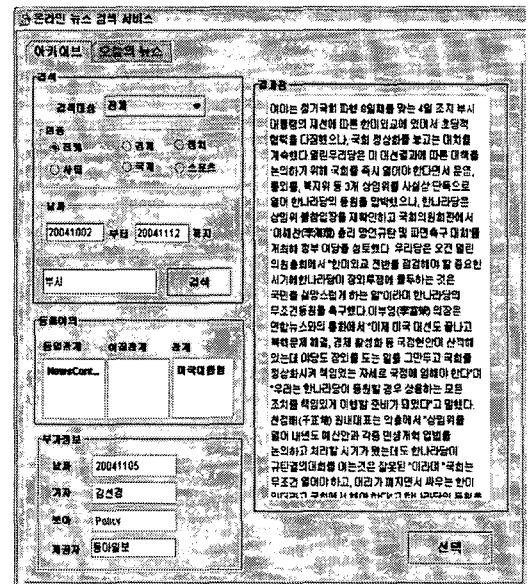 온라인 뉴스 검색 서비스
아카이브 오늘의 뉴스
검색
검색대상 전체
전체 경제 정치
사회 국제 스포츠
날짜
20041002 부터 20041112 까지
부시 검색
동일관계 관계
NewsCont... 미국대통령
부가정보
날짜 20041105
기자 김선경
분야 Policy
제공자 동아일보
결과창
여야는 정기국회 파행 6일째를 맞는 4일 조지 부시
대통령의 재선에 따른 한미외교에 있어서 초당적
협력을 다짐했으나, 국회 정상화를 놓고는 대치를
계속했다.열린우리당은 미 대선결과에 따른 대책을
논의하기 위해 국회를 즉시 열어야 한다면서 운영,
통외통, 복지위 등 3개 상임위를 사실상 단독으로
열어 한나라당의 등원을 압박했으나, 한나라당은
상임위 불참입장을 재확인하고 국회의원회관에서
총리 망언규탄 및 파면촉구 대회'를
개최해 정부 여당을 성토했다. 우리당은 오전 열린
의원총회에서 "한미외교 전반을 점검해야 할 중요한
시기에 한나라당이 장외투쟁에 몰두하는 것은
국민을 실망스럽게 하는 일"이라며 한나라당의
무조건등원을 촉구했다.이부영(李富榮) 의장은
연합뉴스와의 통화에서 "이제 미국 대선도 끝나고
북핵문제 해결, 경제 활성화 등 국정현안이 산적해
있는데 야당도 장외를 도는 일을 그만두고 국회를
정상화시켜 책임있는 자세로 국정에 임해야 한다"며
"우리는 한나라당이 등원할 경우 상응하는 모든
조치를 책임있게 이행할 준비가 돼있다"고 말했다.
천정배(千正培) 원내대표는 의총에서 "상임위를
열어 내년도 예산안과 각종 민생개혁 입법을
논의하고 처리할 시기가 왔는데도 한나라당이
규탄결의대회를 여는것은 잘못된 "이라며 "국회는
무조건 열어야 하고, 머리가 깨지면서 싸우는 한이
선택